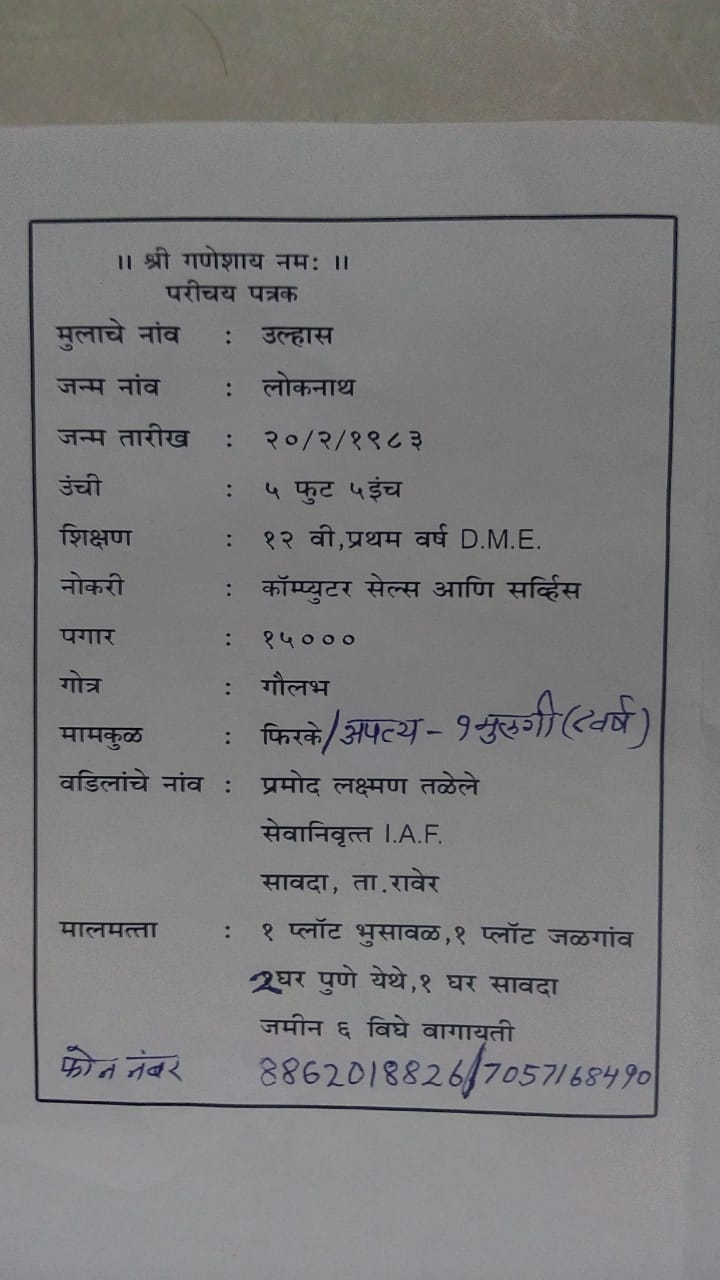 ॥ श्री गणेशाय नमः ॥
परीचय पत्रक
मुलाचे नांव : उल्हास
जन्म नांव : लोकनाथ
जन्म तारीख : २०/२/१९८३
उंची : ५ फुट ५इंच
शिक्षण : १२ वी,प्रथम वर्ष D.M.E.
नोकरी : कॉम्प्युटर सेल्स आणि सर्व्हिस
पगार : १५०००
गोत्र : गौलभ
मामकुळ : फिरके/अपत्य - १ मुलगी (८वर्ष)
वडिलांचे नांव : प्रमोद लक्ष्मण तळेले
सेवानिवृत्त I.A.F.
सावदा, ता.रावेर
मालमत्ता : १ प्लॉट भुसावळ,१ प्लॉट जळगांव
२घर पुणे येथे,१ घर सावदा
जमीन ६ विघे बागायती
फोन नंबर 8862018826/7057168490